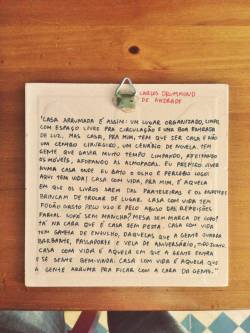 CARLOS DRUMMOND
DE ANDRADE
"CASA ARRUMADA É ASSIM: UM LUGAR ORGANIZADO, LIMPO,
COM ESPAÇO LIVRE PRA CIRCULAÇÃO E UMA BOA ENTRADA
DE LUZ. MAS CASA, PRA MIM, TEM QUE SER CASA E NÃO
UM CENTRO CIRÚRGICO, UM CENÁRIO DE NOVELA. TEM
GENTE QUE GASTA MUITO TEMPO LIMPANDO, AJEITANDO
OS MÓVEIS, AFOFANDO AS ALMOFADAS. EU PREFIRO VIVER
NUMA CASA ONDE EU BATO O OLHO E PERCEBO LOGO:
AQUI TEM VIDA! CASA COM VIDA, PRA MIM, É AQUELA
EM QUE OS LIVROS SAEM DAS PRATELEIRAS E OS ENFEITES
BRINCAM DE TROCAR DE LUGAR. CASA COM VIDA TEM
FOGÃO GASTO PELO USO E PELO ABUSO DAS REFEIÇÕES
FARTAS. SOFÁ SEM MANCHA? MESA SEM MARCA DE COPO?
TÁ NA CARA QUE É CASA SEM FESTA. CASA COM VIDA
TEM GAVETA DE ENTULHO, DAQUELAS QUE A GENTE GUARDA
BARBANTE, PASSAPORTE E VELA DE ANIVERSÁRIO, TUDO JUNTO.
CASA COM VIDA É AQUELA EM QUE A GENTE ENTRA
E SE SENTE BEM-VINDA. CASA COM VIDA É AQUELA QUE
A GENTE ARRUMA PRA FICAR COM A CARA DA GENTE."